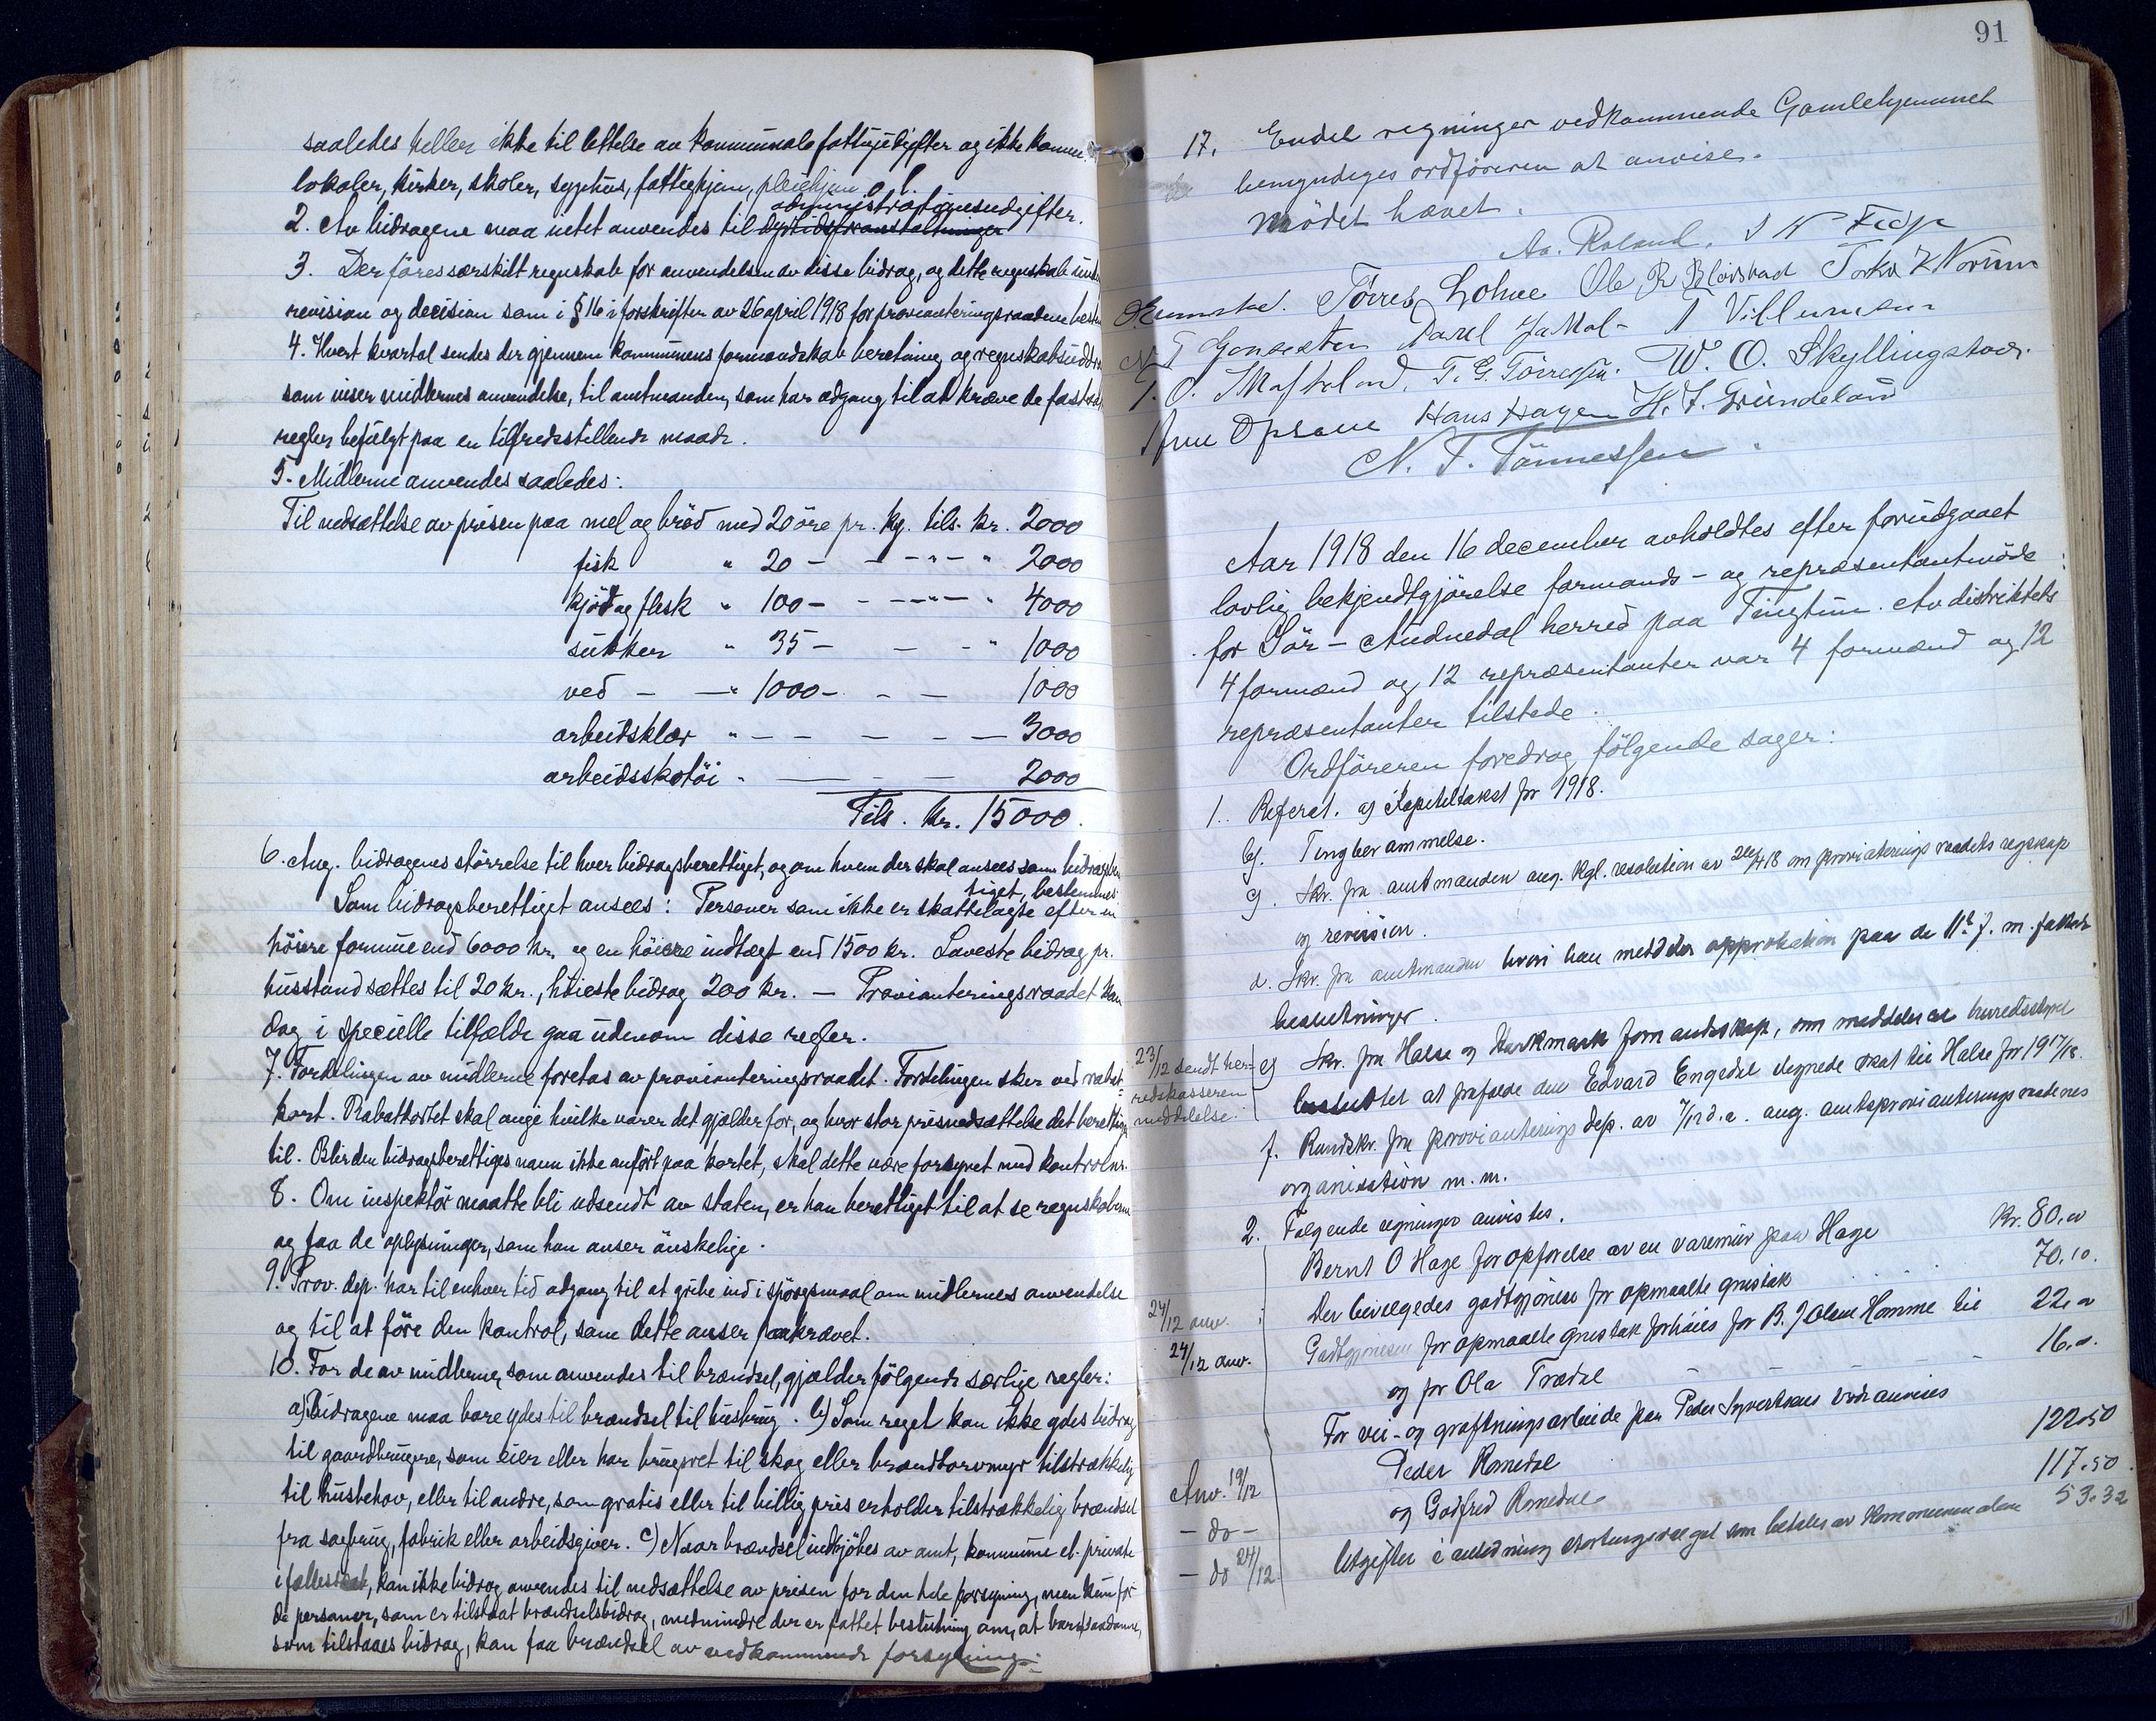 saaledes heller ikke til lettelse av kommunale fattigutgifter og ikke komm.
lokaler, kirker, skoler, sygehus, fattighjem, pleiehjem o. l.
administrationsudgifter.
2. Av bidragene maa intet anvendes til
3. Der føres særskilt regnskab for anvendelsen av disse bidrag, og dette regnskab
revision og decision som i § 16 i forskrifter av 26 april 1918 for provianteringsraadene
4. Hvert kvartal sendes der gjennem kommunens formandskab beretning og regnskabsuddra
som viser midlernes anvendelse, til amtmanden, som har adgang til at kræve de
regler befulgt paa en tilfredsstillende maade.
5. Midlerne anvendes saaledes:
Til nedsættelse av prisen paa mel og brød med 20 öre pr. kg. tils. kr. 2000
fisk " 20 - - - " - " 2000
kjöt og flesk " 100 - - - " - " 4000
sukker " 35 - - - " 1000
ved - - " 1000 - - - 1000
arbeidsklær " - - - - - 3000
arbeidsskotöi " - - - 2000
Tils. kr. 15000.
6. Ang. bidragenes störrelse til hver bidragsberettiget, og om hvem der skal ansees som bidragsber
tiget, bestemmes:
Som bidragsberettiget ansees: Personer som ikke er skattelagte efter en
höiere formue end 6000 kr. og en höiere indtægt end 1500 kr. Laveste bidrag pr.
husstand sættes til 20 kr., höieste bidrag 200 kr. — Provianteringsraadet kan
dog i specielle tilfælde gaa udenom disse regler.
7. Fordelingen av midlerne foretas av provianteringsraadet. Fordelingen sker ved rabat-
kort. Rabatkortet skal angi hvilke varer det gjælder for, og hvor stor prisnedsættelse det berettiger
til. Blir den bidragsberettiges navn ikke anfört paa kortet, skal dette være forsynet med kontrolnr.
8. Om inspektör maatte bli udsendt av staten, er han berettiget til at se regnskaberne
og faa de oplysninger, som han anser önskelige.
9. Prov. dep. har til enhver tid adgang til at gribe ind i spörgsmaal om midlernes anvendelse
og til at före den kontrol, som dette anser paakrævet.
10. For de av midlerne, som anvendes til brændsel, gjælder fölgende særlige regler:
a) Bidragene maa bare ydes til brændsel til husbrug. b) Som regel kan ikke ydes bidrag
til gaardbrugere, som eier eller har brugsret til skog eller brændtorvmyr tilstrækkelig
til husbehov, eller til andre, som gratis eller til billig pris erholder tilstrækkelig brændsel
fra sagbrug, fabrik eller arbeidsgiver. c) Naar brændsel indkjöbes av amt, kommune el. private
i fællesskab, kan ikke bidrag anvendes til nedsættelse av prisen for den hele forsyning, men kun for
de personer, som er tilstaat brændselsbidrag, medmindre der er fattet beslutning om, at bare saadanne,
som tilstaaes bidrag, kan faa brændsel av vedkommende forsyning.
91
17. Endel regninger vedkommende Gamlehjemmet
bemyndiges ordföreren at anvise.
Mödet hævet.
Aa. Roland.
Törres Lohne Ole R
T. G. Törressen. W. O. Skyllingstad.
Hans Hagen H. J. Gründeland
N. T. Tönnessen
Aar 1918 den 16 december avholdtes efter forudgaaet
lovlig bekjendtgjörelse formands- og repræsentantmöde
for Sör-Audnedal herred paa Tingtun. Av distriktets
4 formænd og 12 repræsentanter var 4 formænd og 12
repræsentanter tilstede.
Ordföreren foredrog fölgende sager:
1. Referat. a) Kapiteltakst for 1918.
b). Tingberammelse.
c). Skr. fra amtmanden ang. kgl. resolution av om provianteringsraadets regskap
og revision.
d. Skr. fra amtmanden hvori han meddeler approbation paa de 11te f. m. fattede
beslutninger.
23/12 sendt her-
redskasseren
meddelelse.
e) Skr. fra Halse og Harkmark formandskap, om meddeler at herredsstyret
besluttet at frafalde den Edvard Engedal ilignede skat til Halse for 1917/18.
f. Rundskr. fra provianterings dep. av 7/12 d.a. ang. amtsprovianteringsraadenes
organisation m. m.
2. Følgende regninger anvistes.
Bernt O Hage for opførelse av en varemur paa Hage kr. 80.00
24/12 anv. Der bevilgedes godtgjørelse for opmaalte grustak 70.10.
24/12 anv. Godtgjørelsen for opmaalte grustak forhøies for B. J Olsen Homme til 22.00
og for Ola Trædal 16.00.
For vei- og grøftningsarbeide paa Peder anvises
Anv. 19/12 Peder Romedal 122.50
- do - og Godfred Romedal 117.50.
- do 24/12 Utgifter i anledning stortingsvalget som betales av kommunen alene 53.32